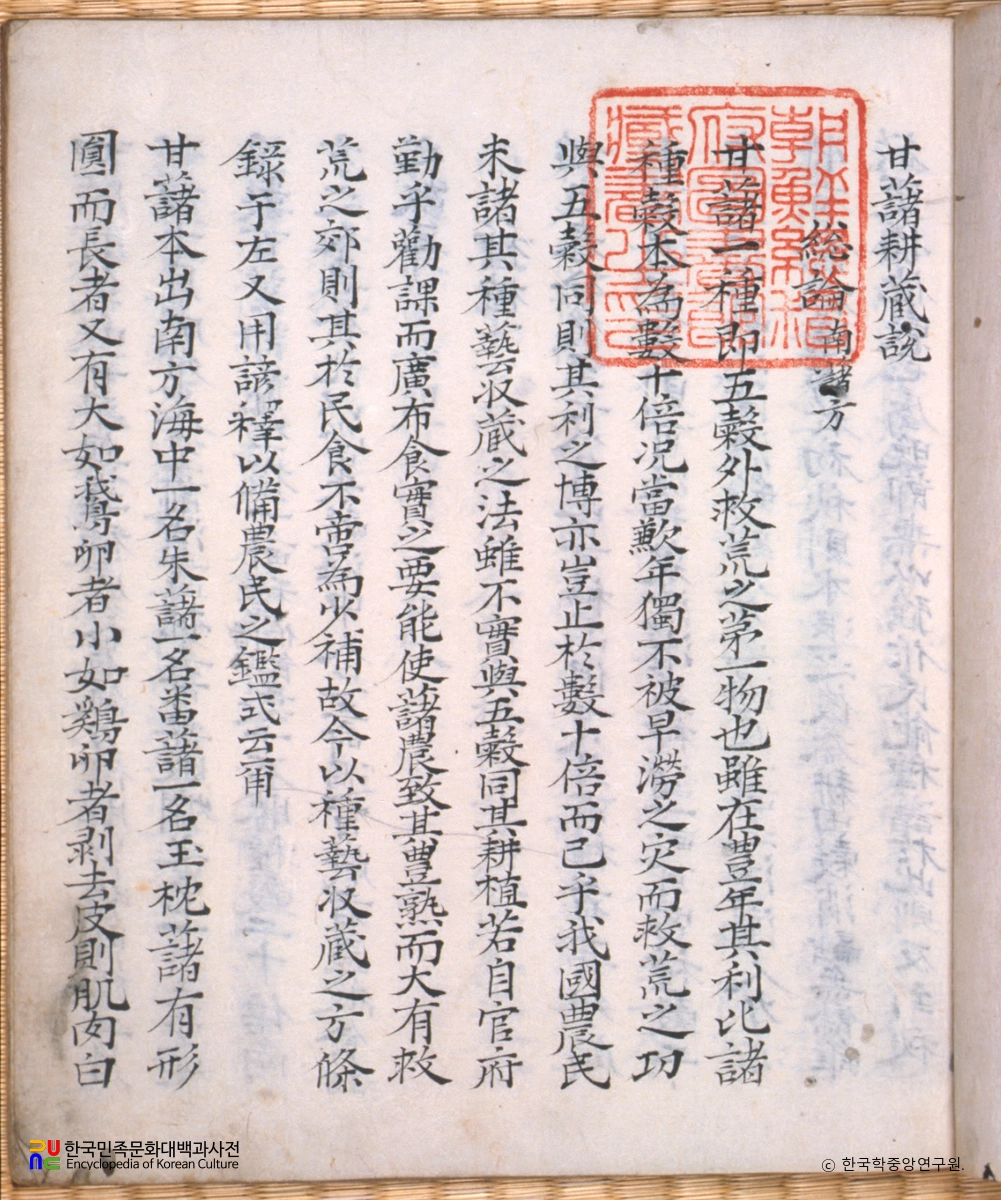 甘藷耕蔵說
総論 南諸方
甘藷一種即五穀外救荒之苐一物也雖在豊年其利比諸
種穀本為數十倍况當歉年獨不被旱澇之灾而救荒之功
與五穀同則其利之博亦豈止於數十倍而已乎我國農民
未諸其種藝収蔵之法雖不實與五穀同其耕植若自官府
勤乎勸課而廣布食實之要能使藷農致其豊熟而大有救
荒之郊則其於民食不啻為少補故今以種藝収蔵之方條
録于左又用諺釋以備農民之鑑式云甭
甘藷本出南方海中一名朱藷一名番藷一名玉枕藷有形
圎而長者又有大如鵞卵者小如鷄卵者剥去皮則肌肉白
朝鮮總督
府圖書館
藏書之印
한국민족문화대백과사전
Encyclopedia of Korean Culture
© 한국학중앙연구원.